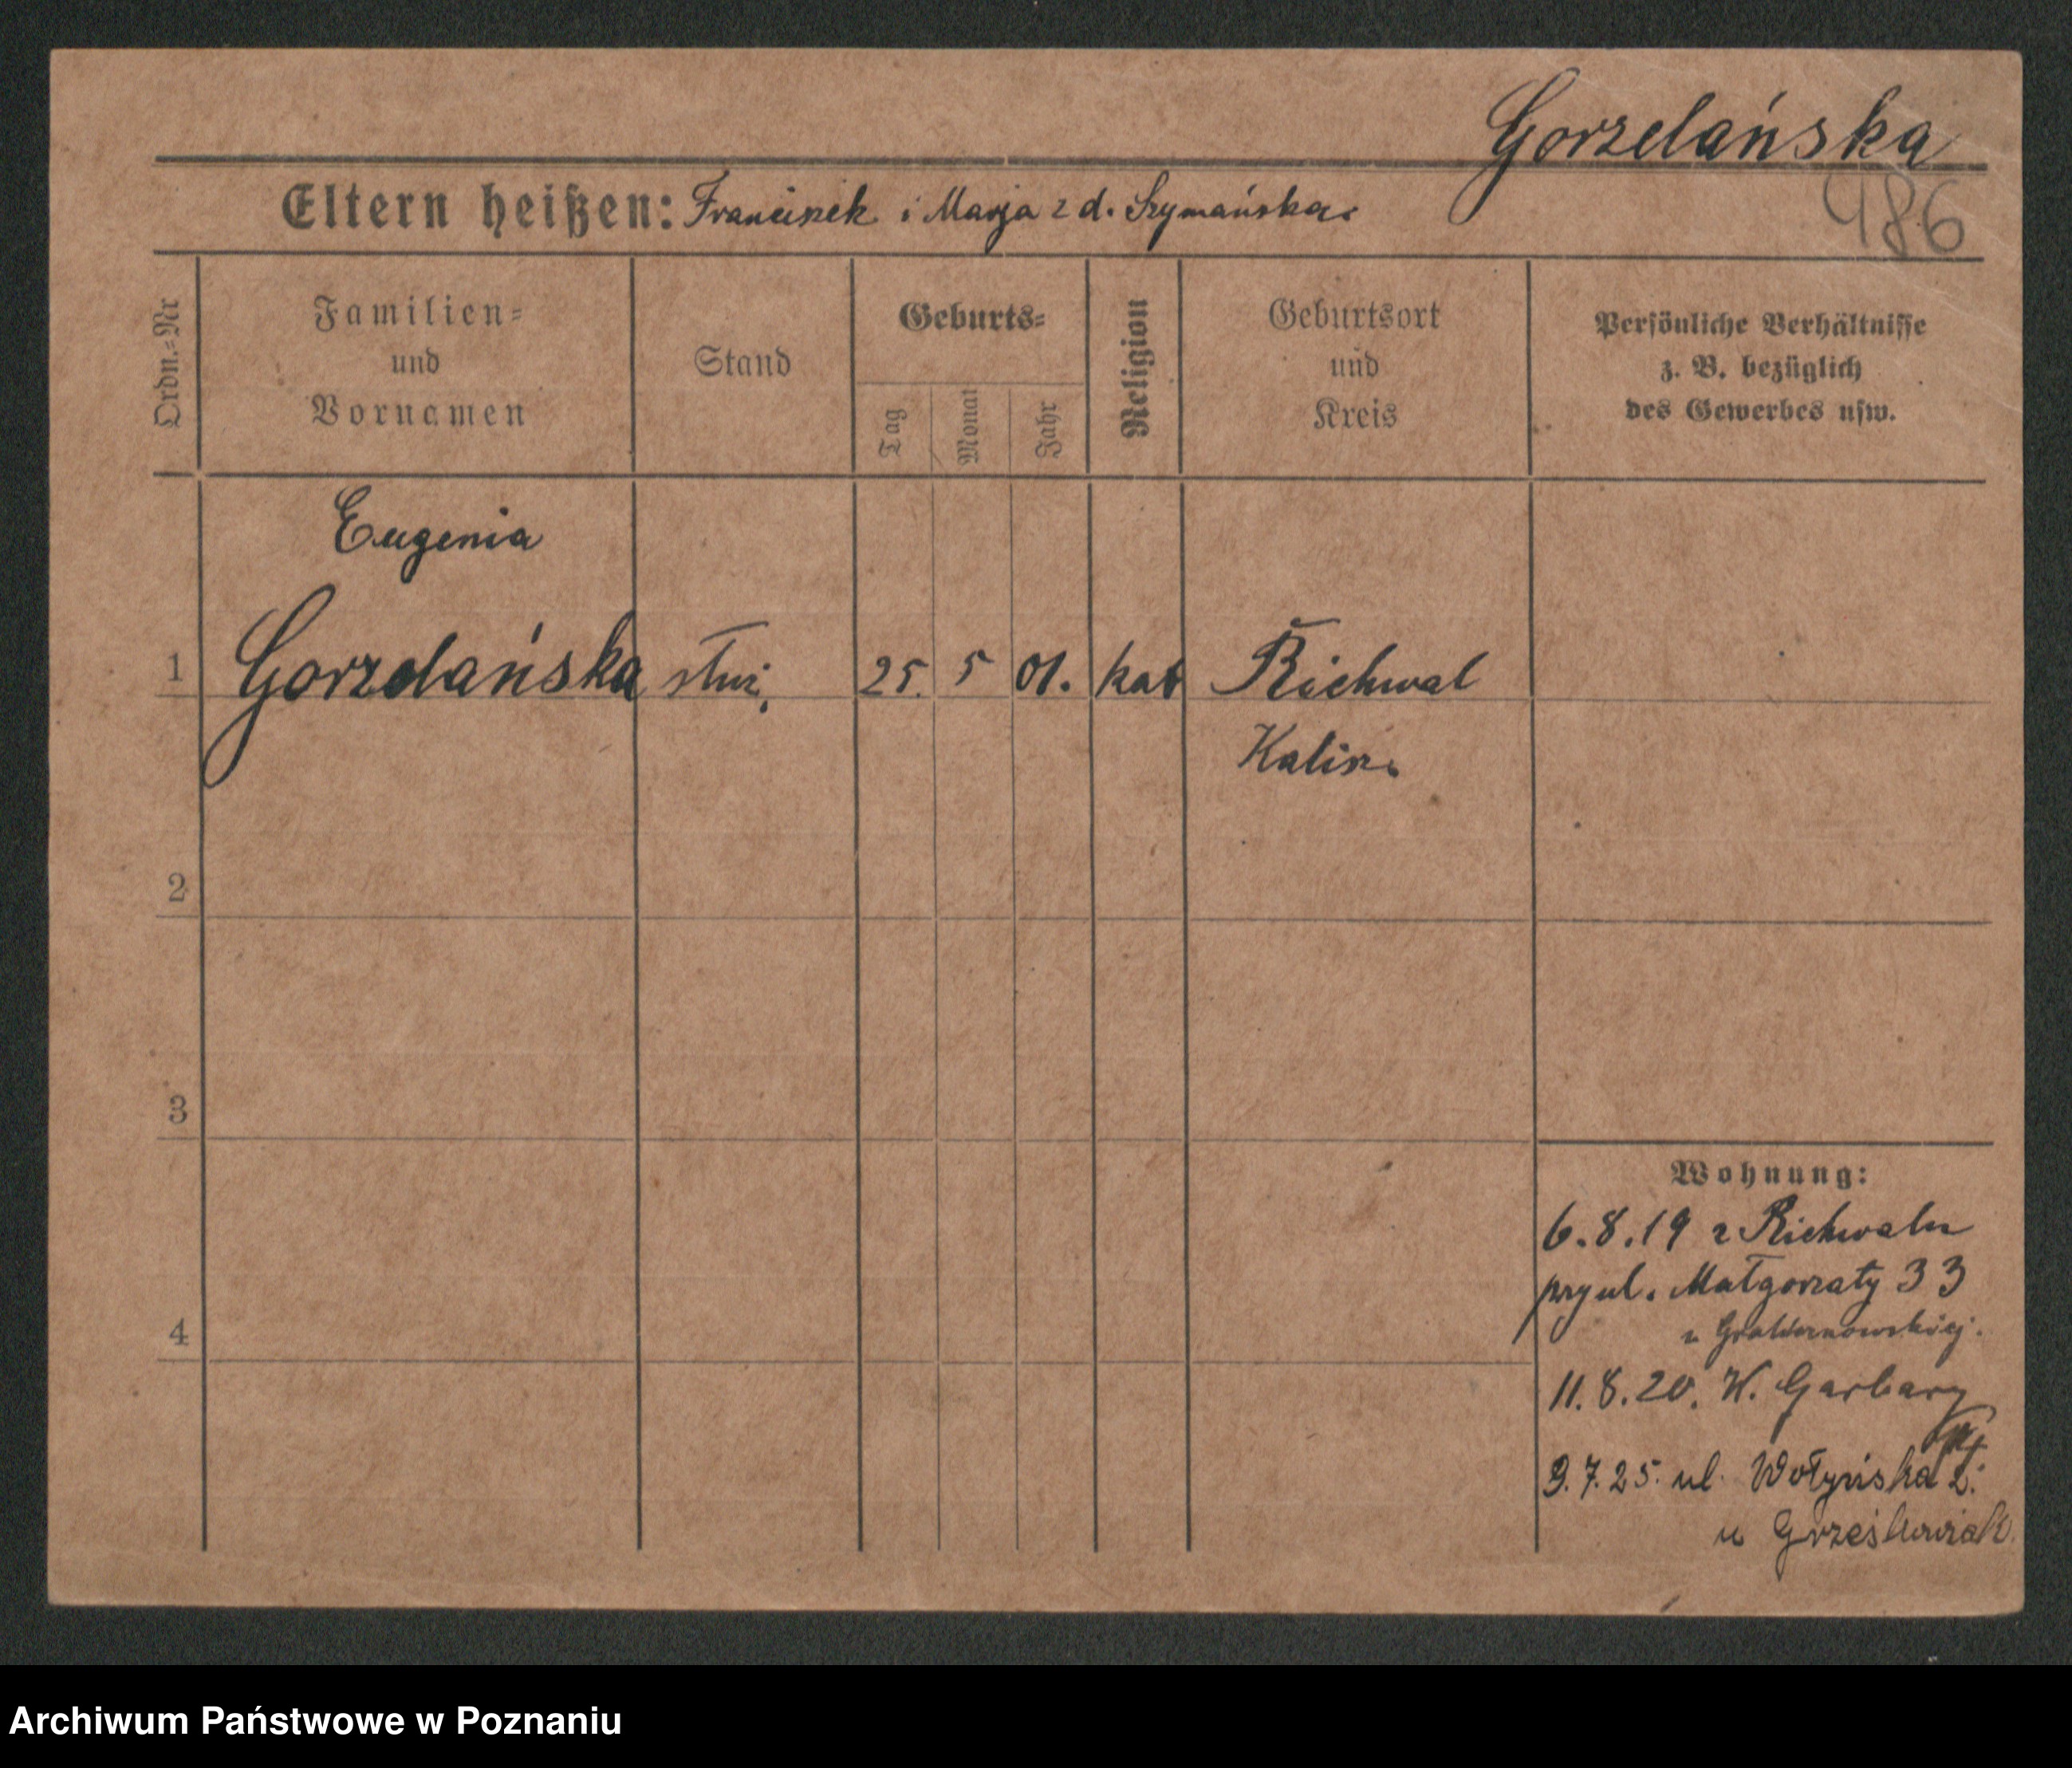 Gorzelańska
486
Eltern heißen: Franciszek i Marja z d. Szymańska.
Ordn.-Nr
Familien-
und
Vornamen
Stand
Geburts-
Tag
Monat
Jahr
Religion
Geburtsort
und
Kreis
Persönliche Verhältnisse
z. B. bezüglich
des Gewerbes usw.
Eugenia
1 Gorzelańska służ. 25. 5 01. kat Richwał
Kalisz.
2
3
4
Wohnung:
6.8.19 z Richwału
przy ul. Małgorzaty 33
u
11.8.20. W. Garbary
9.7.25. ul. Wołyńska 2.
u Grześkowiak.
Archiwum Państwowe w Poznaniu